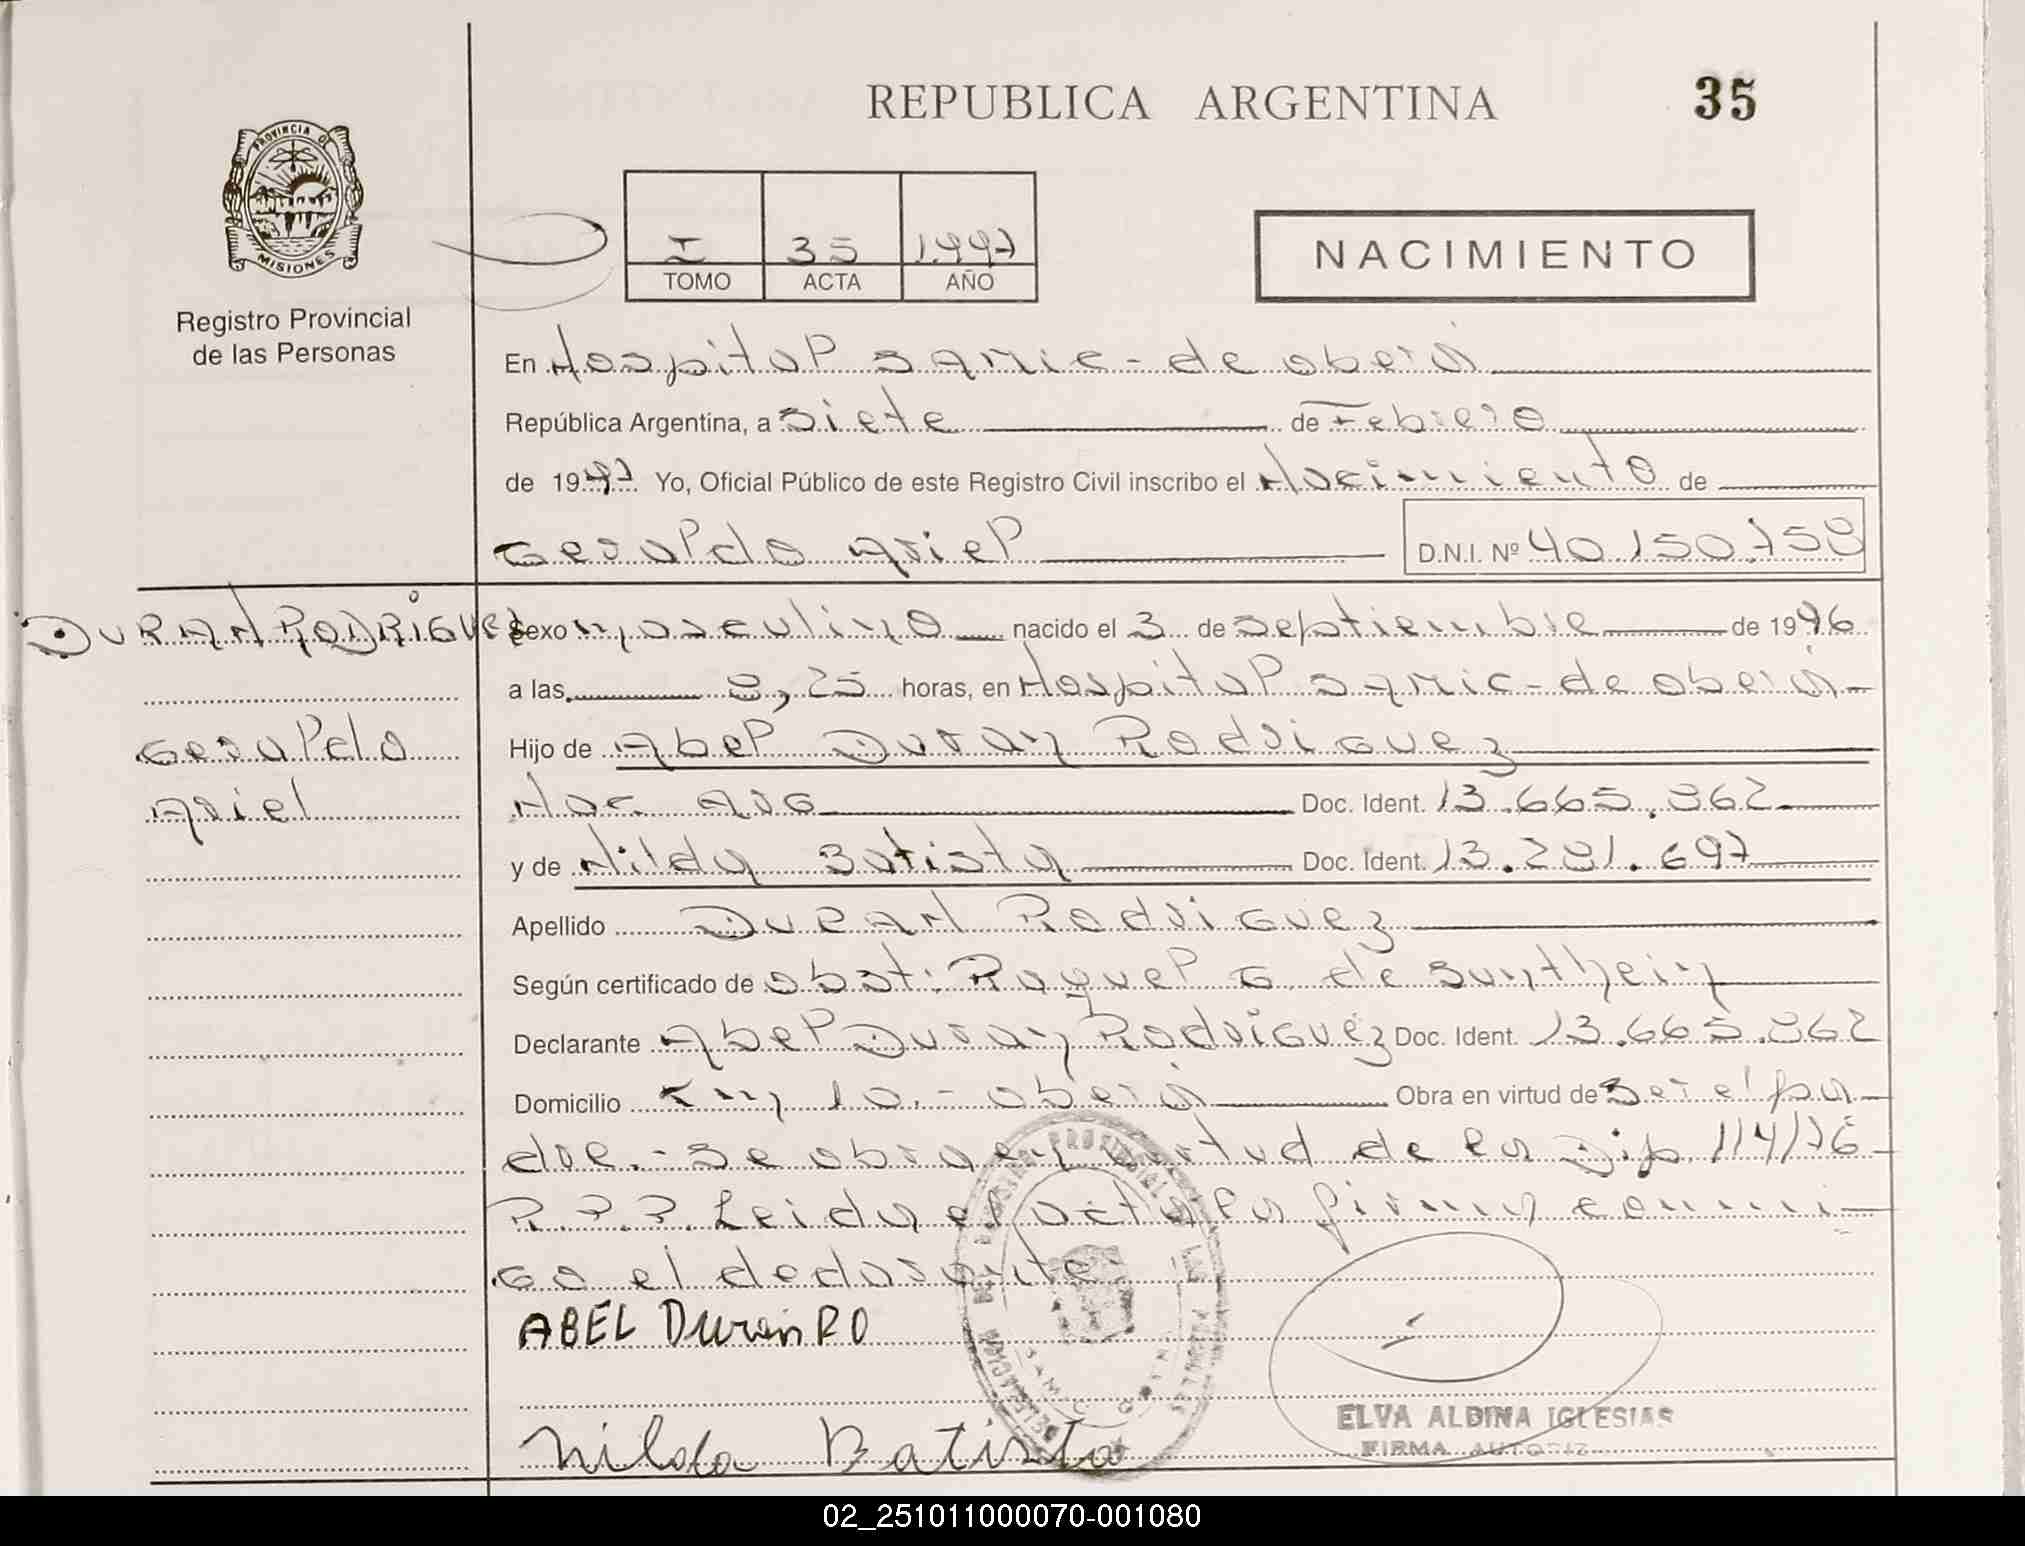 REPUBLICA ARGENTINA
35
PROVINCIA DE
MISIONES
Registro Provincial
de las Personas
I 35 1.997
TOMO ACTA AÑO
NACIMIENTO
En Hospital Samic - de oberá
República Argentina, a siete de Febrero
de 1997 Yo, Oficial Público de este Registro Civil inscribo el Nacimiento de
Geraldo Ariel
D.N.I. Nº 40.150.758
DURAN RODRIGUEZ
Geraldo
Ariel
Sexo masculino nacido el 3 de septiembre de 1996
a las 8,25 horas, en Hospital Samic - de oberá
Hijo de Abel Duran Rodriguez
Nac. Arg Doc. Ident. 13.665.862
y de Nilda Batista Doc. Ident. 13.281.697
Apellido DURAN Rodriguez
Según certificado de obst: Raquel G. de
Declarante Abel Duran Rodriguez Doc. Ident. 13.665.862
Domicilio Km 10.- oberá Obra en virtud de Ser el pa-
dre.- Se obra en virtud de la Disp. 114/76
R.P.P. Leida el acta la firma conmi-
go el
ABEL Duran RO
Nilda Batista
ELVA ALDINA IGLESIAS
FIRMA AUTORIZ.
02_251011000070-001080